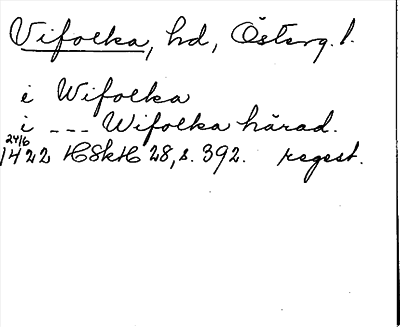 Vifolka, hd, Österg. l.
i Wifolka
i --- Wifolka härad.
24/6
1422 HSkH 28, s. 392. regest.